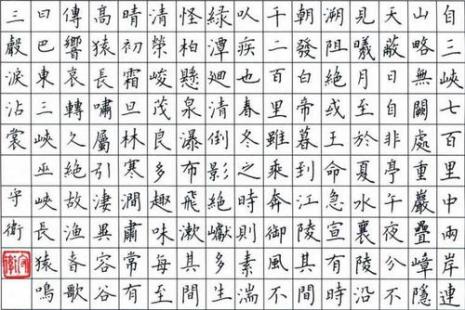 自三峽七百里中兩岸連
山略無闕處重巖疊嶂隱
天蔽日自非亭午夜分不
見曦月至於夏水襄陵沿
溯阻絕或王命急宣有時
朝發白帝暮到江陵其間
千二百里雖乘奔御風不
以疾也春冬之時則素湍
綠潭迴清倒影絕巘多生
怪柏懸泉瀑布飛漱其間
清榮峻茂良多趣味每至
晴初霜旦林寒澗肅常有
高猿長嘯屬引淒異容谷
傳響哀轉久絕故漁音歌
曰巴東三峽巫峽長猿鳴
三聲淚沾裳 守衛